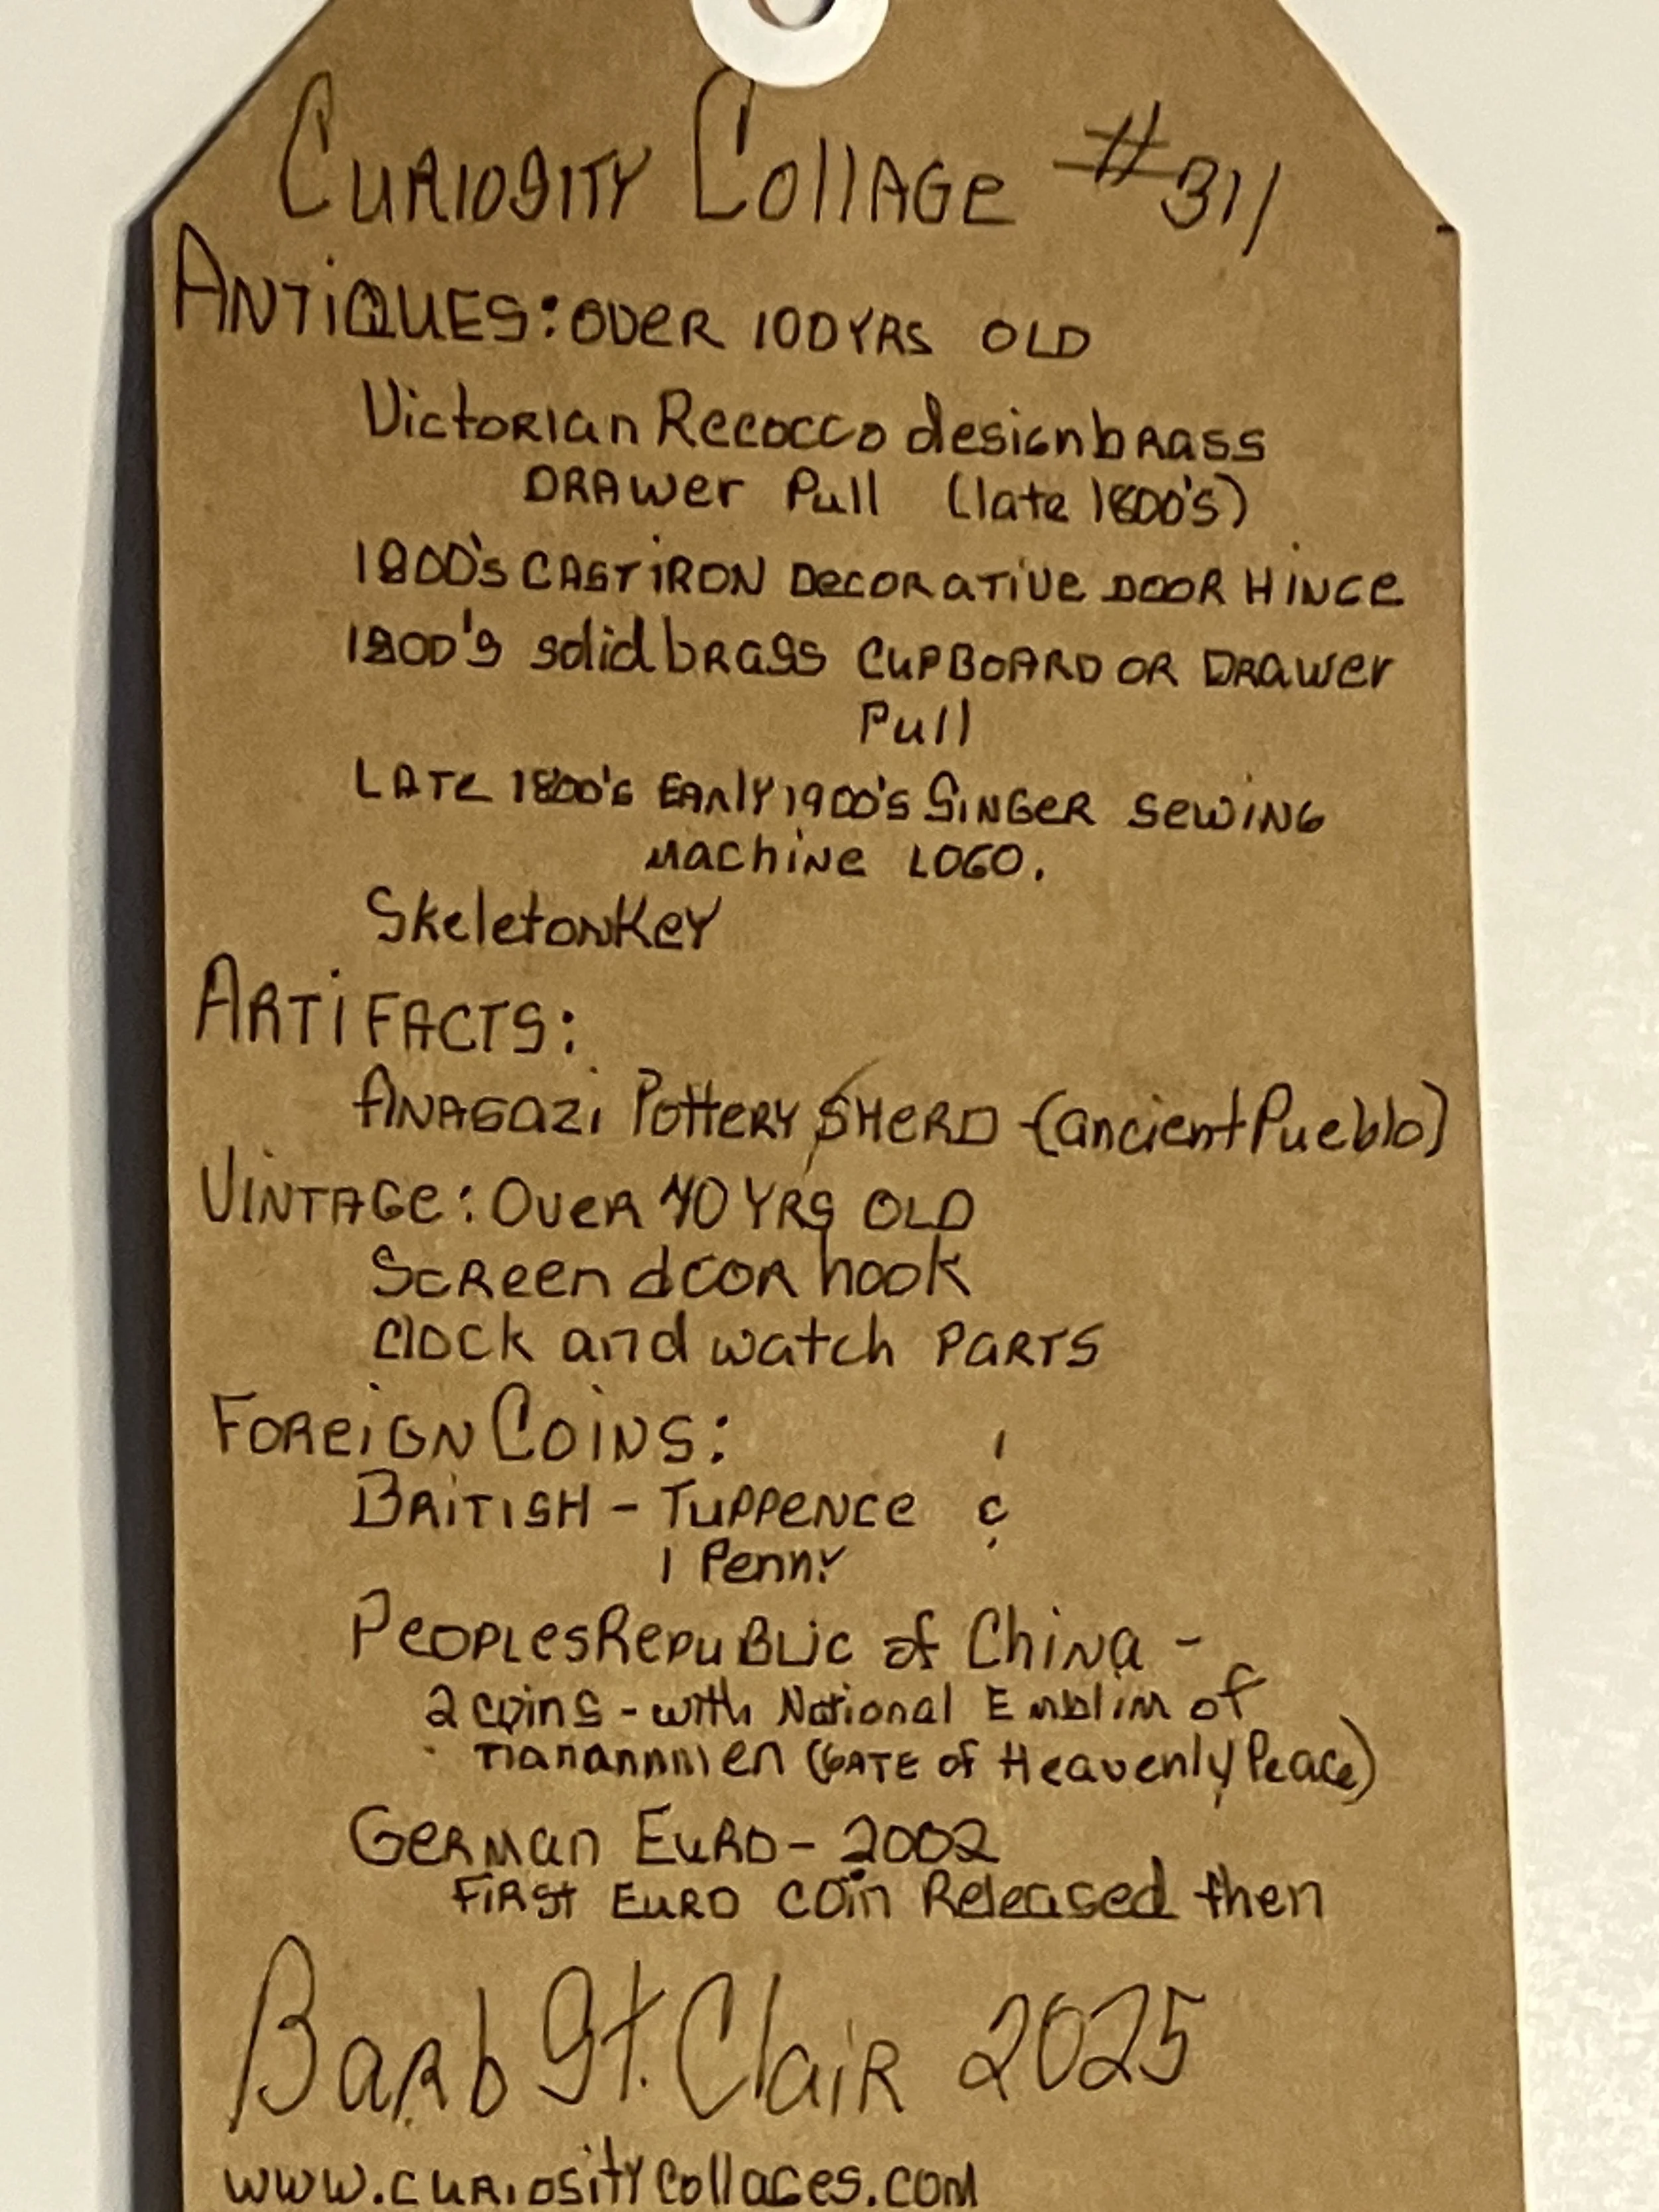 Curiosity Collage #311
Antiques: over 100 yrs old
Victorian Recocco design brass
Drawer Pull (late 1800's)
1800's cast iron decorative door Hinge
1800's solid brass cupboard or drawer
Pull
Late 1800's Early 1900's Singer sewing
machine logo.
Skeleton Key
Artifacts:
Anasazi Pottery Sherd (ancient Pueblo)
Vintage: Over 40 yrs old
Screen door hook
Clock and watch parts
Foreign Coins:
British - Tuppence &
1 Penny
Peoples Republic of China -
2 coins - with National Emblim of
(Gate of Heavenly Peace)
German Euro - 2002
First Euro coin Released then
Barb St. Clair 2025
www.curiositycollages.com